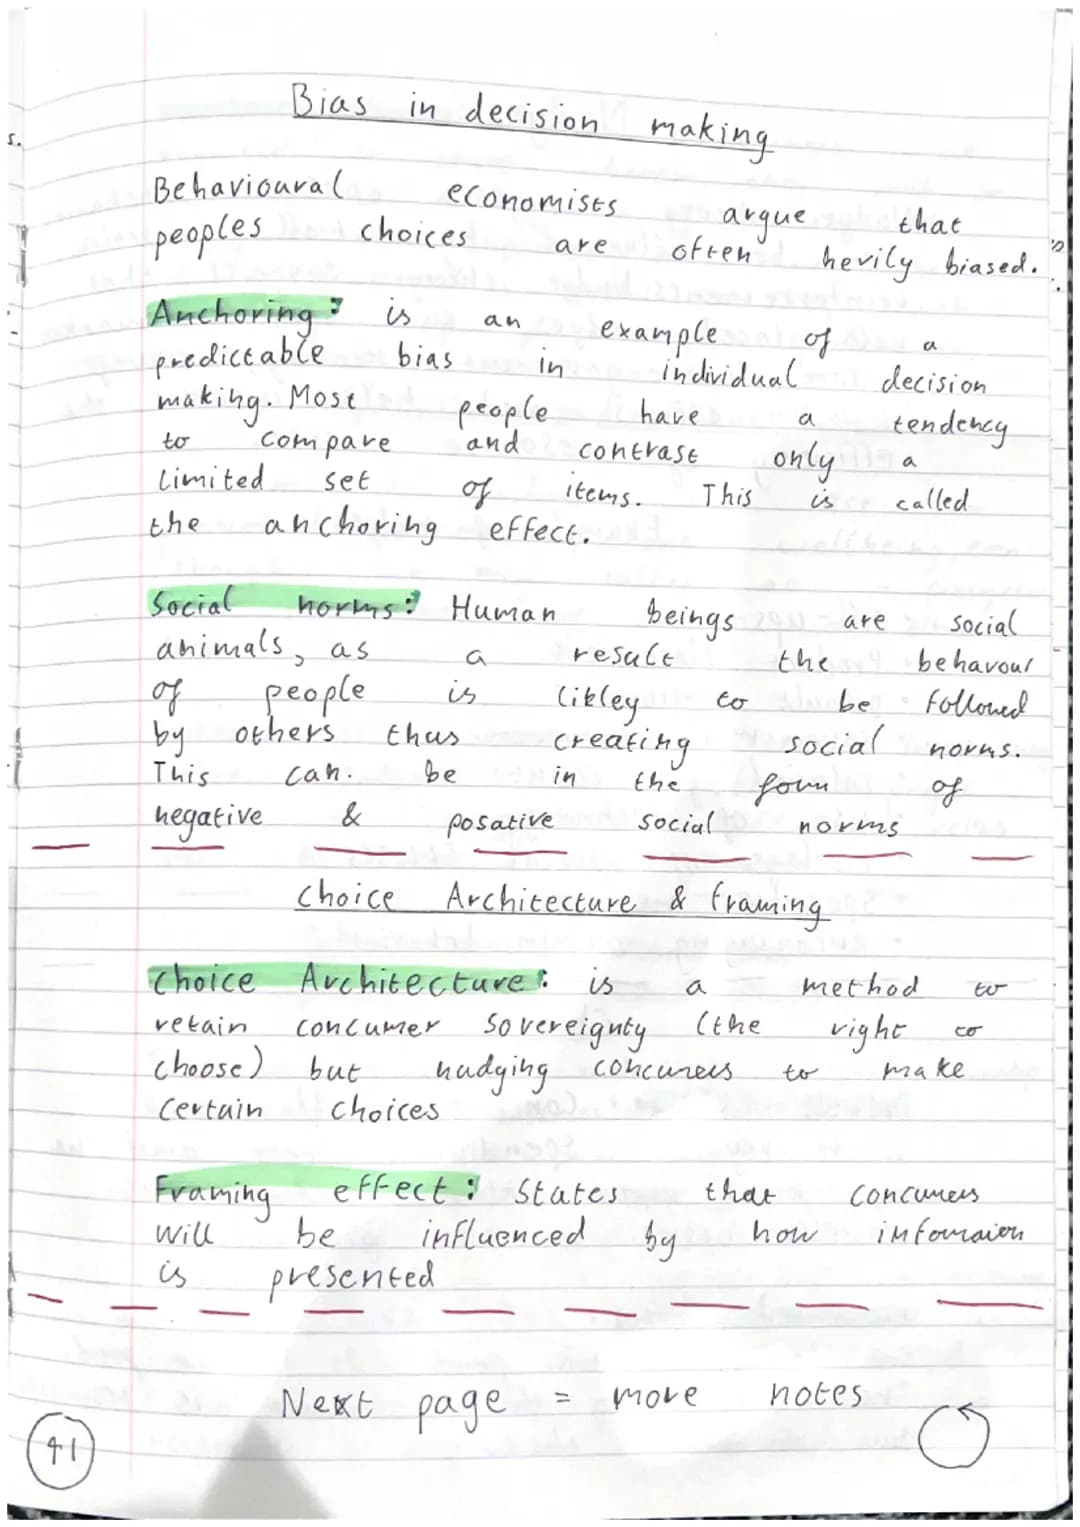 Bias in decision making
Behavioural economists argue that
peoples choices are often hevily biased.
Anchoring: is an example of a
predictable bias in individual decision
making. Most people have a tendency
to compare and contrast only a
limited set of items. This is called
the anchoring effect.
Social norms: Human beings are social
animals, as a result the behavour
of people is likley to be followed
by others thus creating social norms.
This can. be in the form of
negative & posative social norms
Choice Architecture & framing
Choice Architecture: is a method to
retain concumer sovereignty (the right to
choose) but nudging concumers to make
certain choices
Framing effect: States that concumers
will be influenced by how infomaion
is presented
Next page = more notes
41